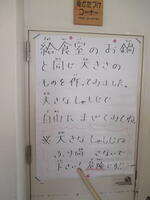 おかたづけ
コーナー
給食室のお鍋
と同じ大きさの
ものを作ってみました。
大きなしゃもじで
自由にまぜてみてね
※大きなしゃもじは
ふり回さないで
下さい!危険です!